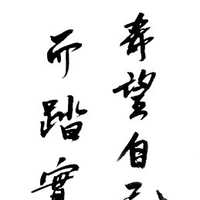 希望自
而踏實